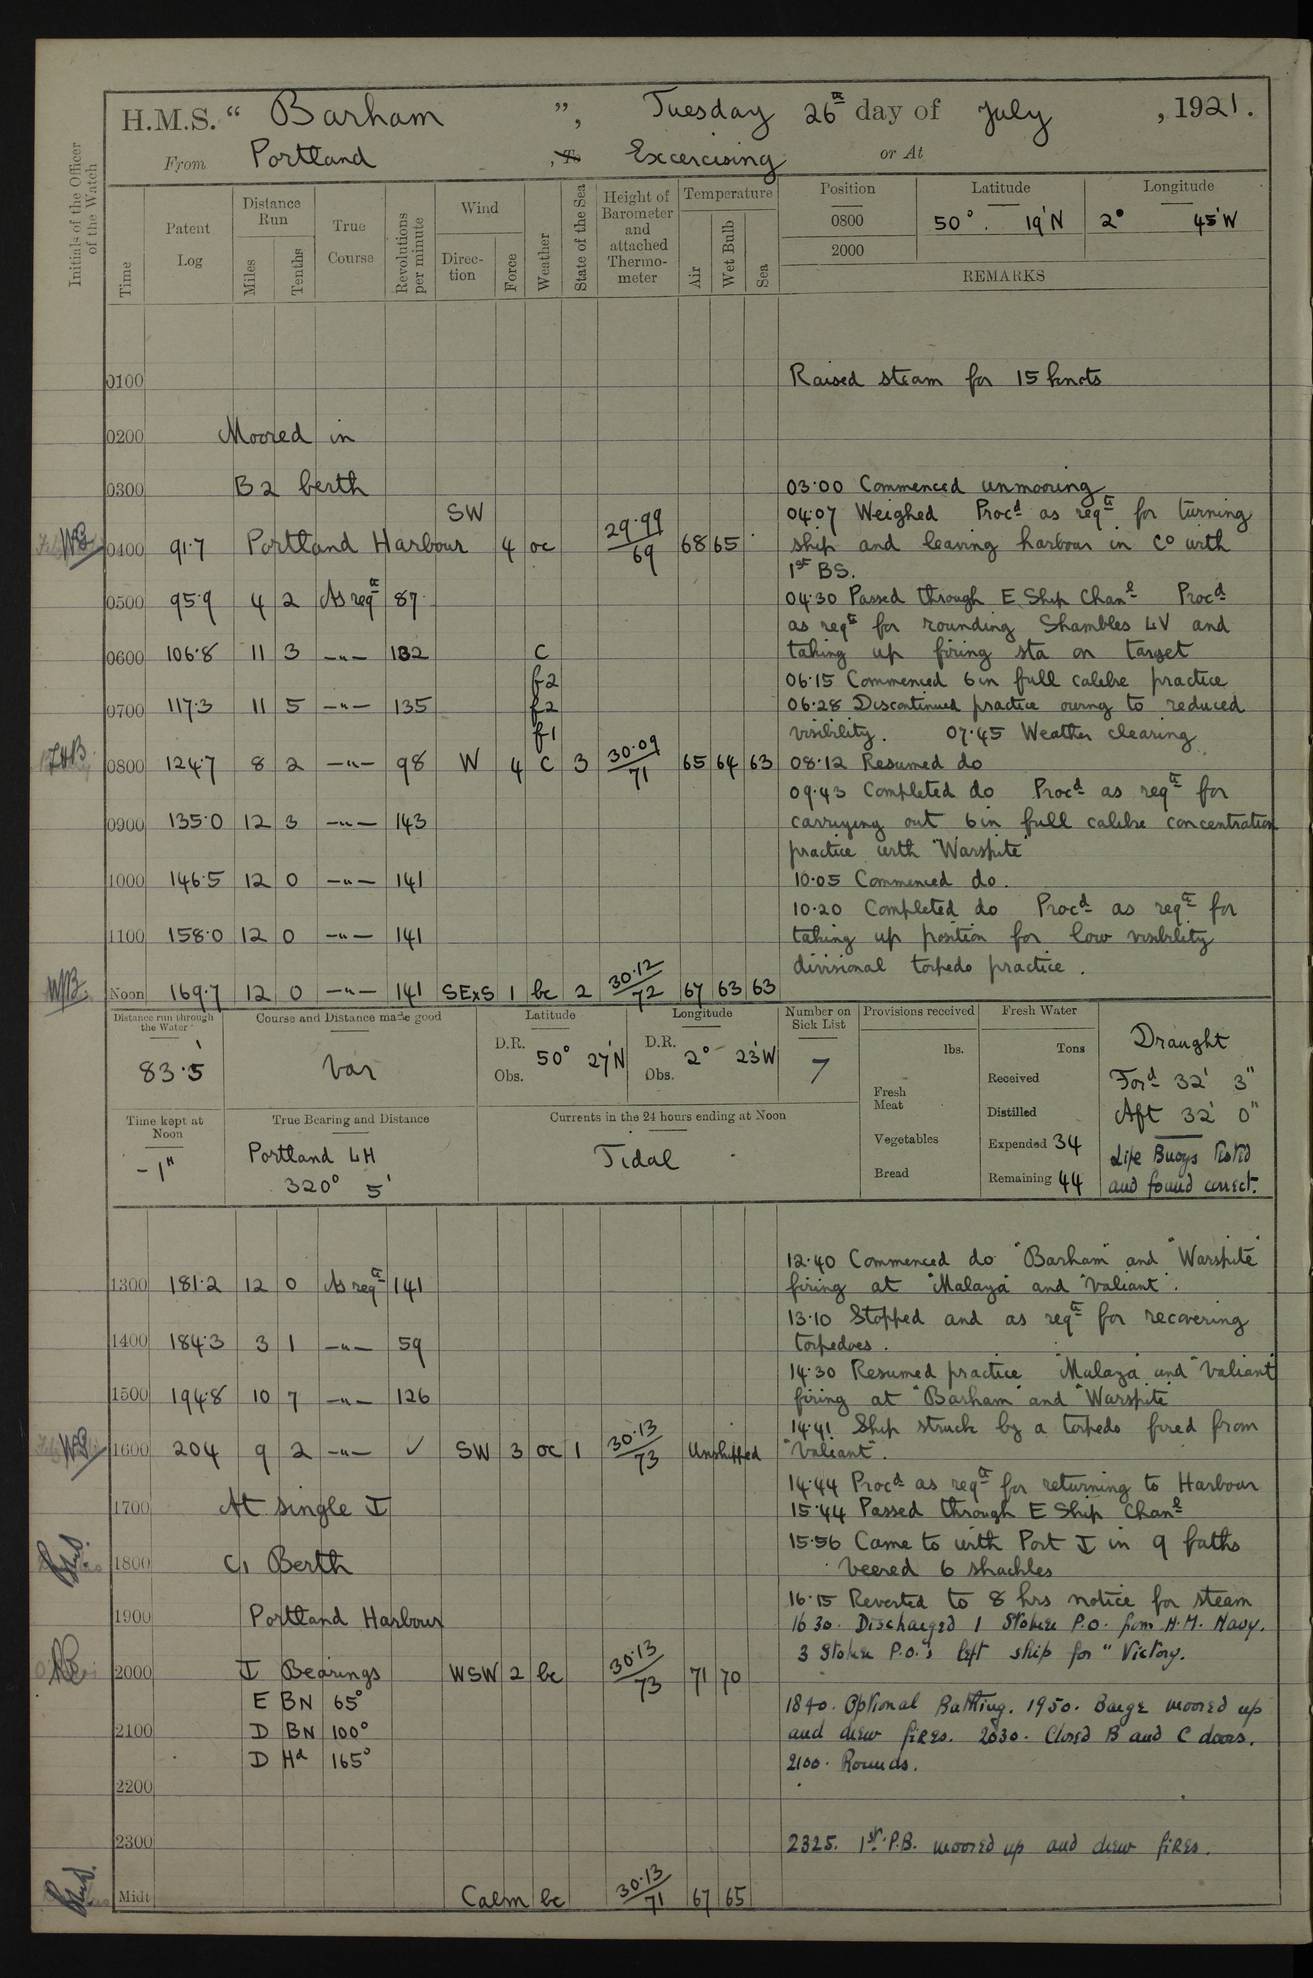 H.M.S. “ Barham ”, Tuesday 26th day of July , 1921.
From Portland , To Excercising or At
Initials of the Officer of the Watch
Time
Patent Log
Distance Run
Miles
Tenths
True Course
Revolutions per minute
Wind
Direction
Force
Weather
State of the Sea
Height of Barometer and attached Thermometer
Temperature
Air
Wet Bulb
Sea
Position Latitude Longitude
0800 50° . 19'N 2° 45'W
2000
REMARKS
0100 Raised steam for 15 knots
0200 Moored in
0300 B2 berth 03·00 Commenced unmooring
SW 04·07 Weighed Procd as reqte for turning
0400 91·7 Portland Harbour 4 oc 29·99/69 68 65 ship and leaving harbour in Co with
1st BS.
0500 95·9 4 2 As reqte 87 04·30 Passed through E Ship Chanl Procd
as reqte for rounding Shambles LV and
0600 106·8 11 3 -"- 132 C taking up firing sta on target
f2 06·15 Commenced 6in full calibre practice
0700 117·3 11 5 -"- 135 f2 06·28 Discontinued practice owing to reduced
f1 visibility. 07·45 Weather clearing
0800 124·7 8 2 -"- 98 W 4 C 3 30·09/71 65 64 63 08·12 Resumed do
09·43 Completed do Procd as reqte for
0900 135·0 12 3 -"- 143 carrying out 6in full calibre concentration
practice with "Warspite"
1000 146·5 12 0 -"- 141 10·05 Commenced do.
10·20 Completed do Procd as reqte for
1100 158·0 12 0 -"- 141 taking up position for low visibility
divisional torpedo practice.
Noon 169·7 12 0 -"- 141 SExS 1 bc 2 30·12/72 67 63 63
Distance run through the Water
83·5'
Course and Distance made good
Var
Latitude
D.R. 50° 27'N
Obs.
Longitude
D.R. 2° 23'W
Obs.
Number on Sick List
7
Provisions received
lbs.
Fresh Meat
Vegetables
Bread
Fresh Water
Tons
Received
Distilled
Expended 34
Remaining 44
Draught
Ford 32' 3"
Aft 32' 0"
Life Buoys tested
and found correct.
Time kept at Noon
-1H
True Bearing and Distance
Portland LH
320° 5'
Currents in the 24 hours ending at Noon
Tidal
12·40 Commenced do "Barham" and "Warspite"
1300 181·2 12 0 As reqte 141 firing at "Malaya" and "Valiant".
13·10 Stopped and as reqte for recovering
1400 184·3 3 1 -"- 59 torpedoes.
14·30 Resumed practice "Malaya" and "Valiant"
1500 194·8 10 7 -"- 126 firing at "Barham" and "Warspite"
14·41 Ship struck by a torpedo fired from
1600 204 9 2 -"- ✓ SW 3 oc 1 30·13/73 Unshipped "Valiant".
14·44 Procd as reqte for returning to Harbour
1700 At single 15·44 Passed through E Ship Chanl
15·56 Came to with Port in 9 faths
1800 C1 Berth veered 6 shackles
16·15 Reverted to 8 hrs notice for steam
1900 Portland Harbour 1630. Discharged 1 Stoker P.O. from H.M. Navy.
3 Stoker P.O.'s left ship for "Victory.
2000 Bearings WSW 2 bc 30·13/73 71 70
E BN 65° 1840. Optional Bathing. 1950. Barge moored up
2100 D BN 100° and drew fires. 2030. Closed B and C doors.
D Hd 165° 2100. Rounds.
2200
2300 2325. 1st P.B. moored up and drew fires.
Midt Calm bc 30·13/71 67 65